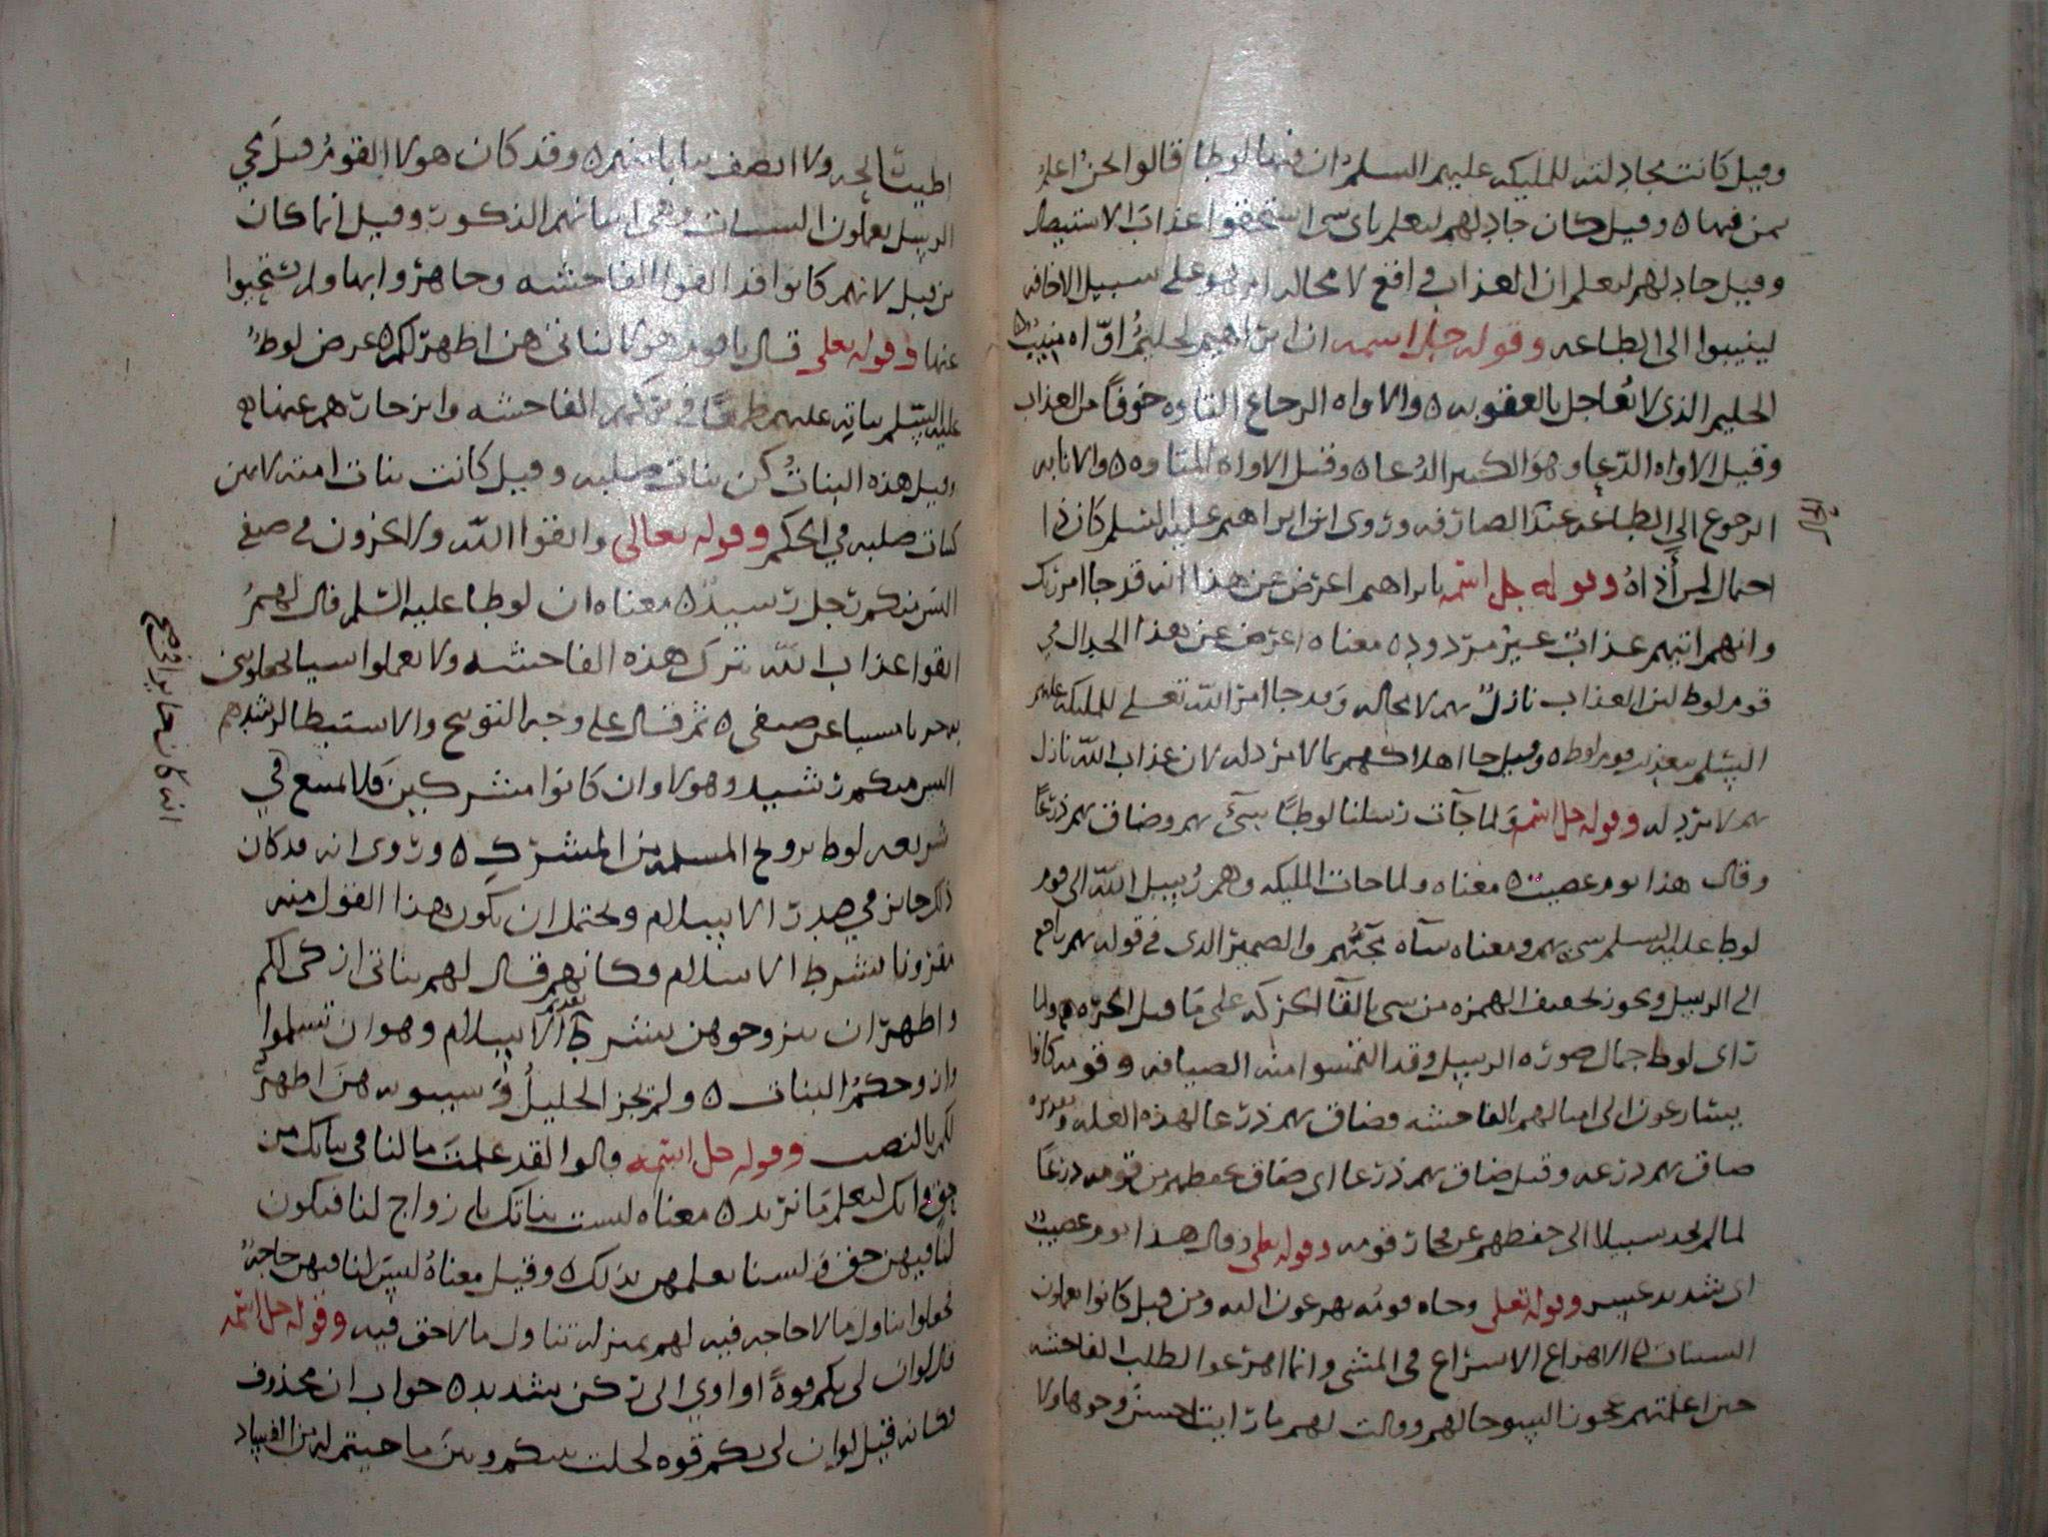 وقيل كانت مجادلته للمليكه عليهم السلم ان فيها لوطا قالوا نحن اعلم
بمن فيها ٥ وقيل كان جادلهم ليعلم باى شى استحقوا عذاب الاستيصال
وقيل جادلهم ليعلم ان العذاب واقع لا محاله ام هو على سبيل الاخافه
لينيبوا الى الطاعه وقوله جل اسمه ان ابراهيم لحليم اواه منيب ٥
الحليم الذى لا يعاجل بالعقوبه ٥ والاواه الرجاع المتاوه خوفا من العذاب
وقيل الاواه الدعا وهو الكثير الدعا ٥ وقيل الاواه المتاوه ٥ والانابه
الرجوع الى الطاعه عند الصارفه وروى ان ابراهيم عليه السلم كان ذا
احتمال لمن أذاه وقوله جل اسمه يا براهيم اعرض عن هذا انه قد جا امر ربك
وانهم اتيهم عذاب غير مردود ٥ معناه اعرض عن هذا الجدال في
قوم لوط لان العذاب نازل بهم لا محاله وقد جا امر الله تعلى للمليكه عليهم
السلم بعذاب قوم لوط ٥ وقيل جا اهلاكهم بما لا مرد له لان عذاب الله نازل
بهم لا مرد له وقوله جل اسمه ولما جآت رسلنا لوطا سىء بهم وضاق بهم ذرعا
وقال هذا يوم عصيب ٥ معناه ولما جات المليكه وهم رسل الله الى قوم
لوط عليه السلم سى بهم ومعناه سآه مجيهم والضمير الذى في قوله بهم راجع
الى الرسل ويجوز تخفيف الهمزه من سى بالقآ الحركه على ما قبل الحره ولما
راى لوط جمال صوره الرسل وقد التمسوا منه الضيافه وقومه كانوا
يسارعون الى امثالهم بالفاحشه فضاق بهم ذرعا لهذه العله وتقديره
ضاق بهم ذرعه وقيل ضاق بهم ذرعا اى ضاق بحفظهم من قومه ذرعا
لما لم يجد سبيلا الى حفظهم عن فجار قومه وقوله تعلى وقال هذا يوم عصيب
اى شديد عسير وقوله تعلى وجاه قومه يهرعون اليه ومن قبل كانوا يعملون
السيئات ٥ الاهراع الاسراع في المشى وانما اهرعوا لطلب الفاحشه
حين اعلمتهم عجوز السوء حالهم وقالت لهم ما رايت احسن وجوها ولا
اطيب رايحه ولا انظف ثيابا منهم ٥ وقد كان هولا القوم قبل مجي
الرسل يعملون السيات وهى اتيانهم الذكور وقيل انما كان
من قبل لانهم كانوا قد الفوا الفاحشه وجاهروا بها ولم يستحيوا
عنها وقوله تعلى قال يا قوم هولا بناتى هن اطهر لكم ٥ عرض لوط
عليه السلم بناته عليهم طمعا في تركهم الفاحشه وانزجارهم عنها ثم
وقيل هذه البنات كن بنات صلبه وقيل كانت بنات امته لا من
بنات صلبه في الحكم وقوله تعالى واتقوا الله ولا تخزون في ضيفى
اليس منكم رجل رشيد ٥ معناه ان لوطا عليه السلم قال لهم
اتقوا عذاب الله بترك هذه الفاحشه ولا تعملوا شيا
ضيفى ٥ ثم قال على وجه التوبيخ والاستبطا لرشدهم
اليس منكم رشيد وهولا وان كانوا مشركين فلا يمتنع في
شريعه لوط تزويج المسلمه من المشرك ٥ وروى انه قد كان
ذلك جايز في صدر الاسلام ويحتمل ان يكون هذا القول منه
مقرونا بشرط الاسلام وكانه قال لهم بناتى ازكى لكم
واطهر ان تتزوجوهن بشرط تقديم الاسلام وهو ان تسلموا
وازوجكم البنات ٥ ولم يجز الخليل وسيبويه هن اطهر
لكم بالنصب وقوله جل اسمه قالوا لقد علمت ما لنا في بناتك من
حق وانك لتعلم ما نريد ٥ معناه ليست بناتك بازواج لنا فيكون
لنا فيهن حق ولسنا بذلك ٥ وقيل معناه ليس لنا فيهن حاجة
فجعلوا تناول ما لا حاجه فيه لهم بمنزله تناول ما لا حق فيه وقوله جل اسمه
قال لو ان لى بكم قوة او اوي الى ركن شديد ٥ جواب ان محذوف
فكانه قيل لو ان لى بكم قوه لحلت بينكم وبين ما جيتم له من الفساد